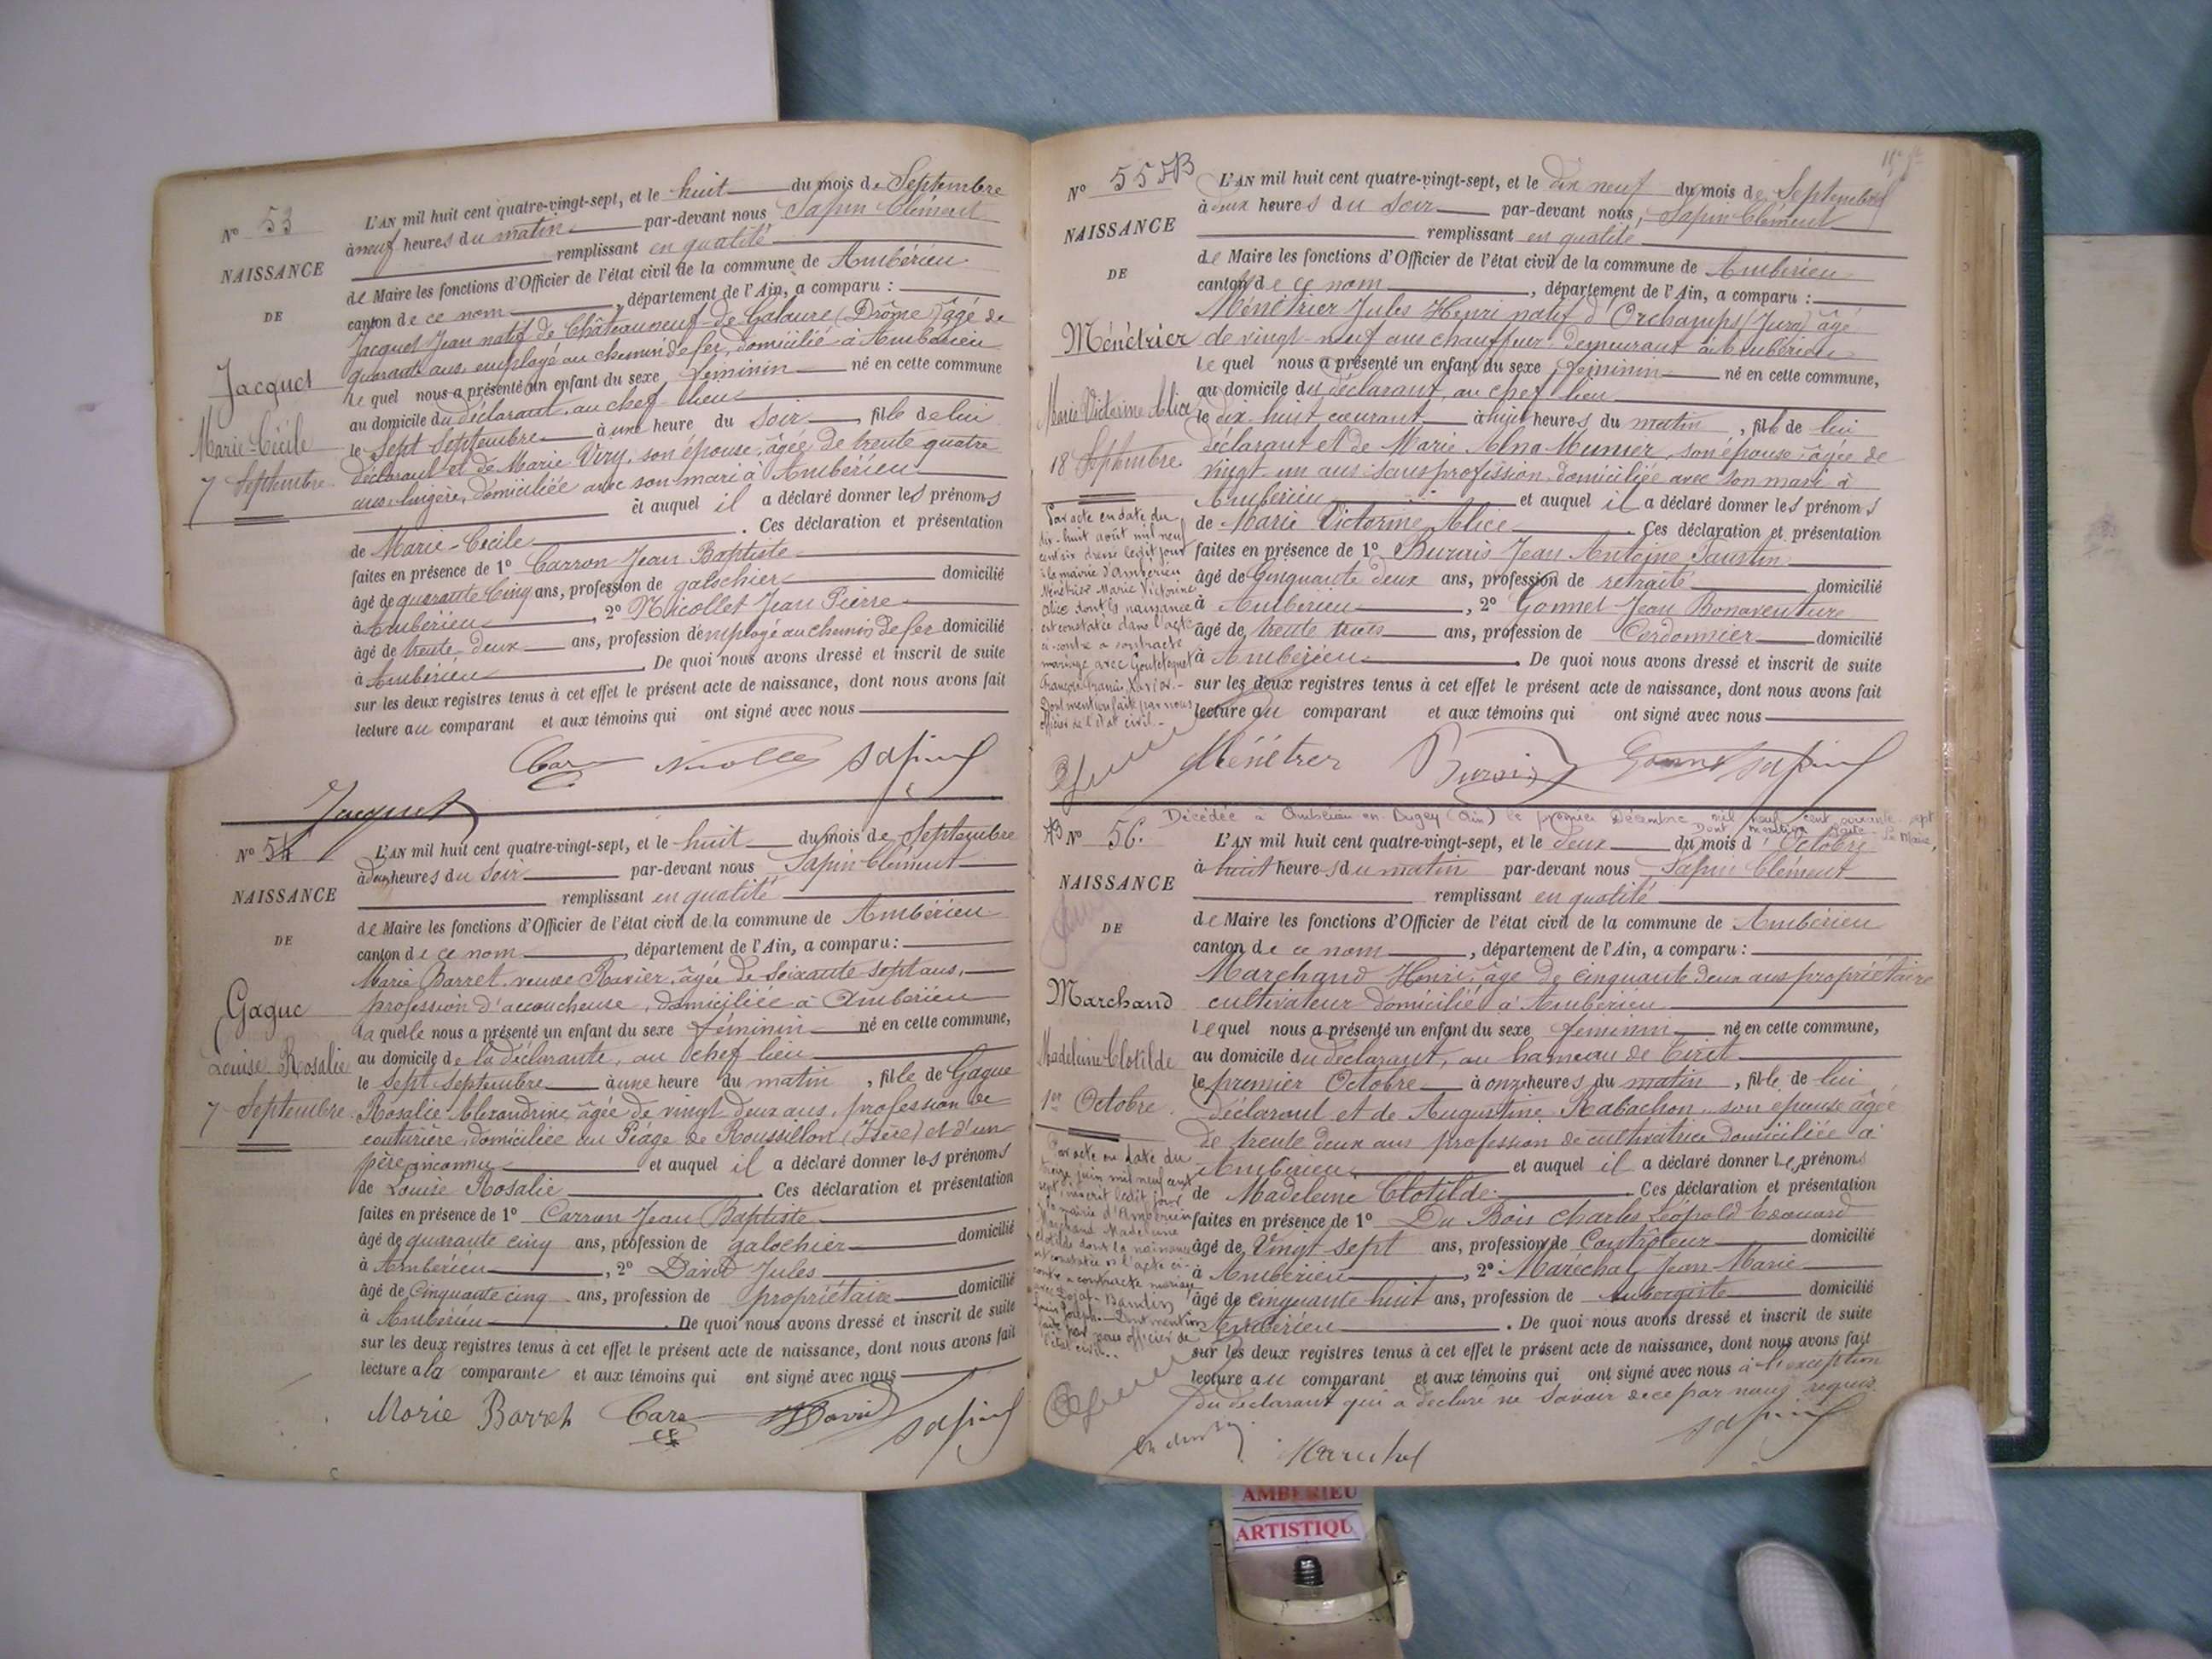 N° 53
NAISSANCE
DE
Jacquet
Marie-Cécile
7 Septembre
L'AN mil huit cent quatre-vingt-sept, et le huit du mois de Septembre
à neuf heures du matin par-devant nous Sapin Clément
remplissant en qualité
de Maire les fonctions d'Officier de l'état civil de la commune de Ambérieu
canton de ce nom, département de l'Ain, a comparu :
Jacquet Jean natif de Châteauneuf-de-Galaure (Drôme) âgé de
quarante ans, employé au chemin de fer, domicilié à Ambérieu
le quel nous a présenté un enfant du sexe féminin né en cette commune
au domicile du déclarant, au chef lieu
le sept Septembre à une heure du soir, fille de lui
déclarant et de Marie Viry, son épouse, âgée de trente quatre
ans lingère, domiciliée avec son mari à Ambérieu
et auquel il a déclaré donner les prénoms
de Marie-Cécile. Ces déclaration et présentation
faites en présence de 1° Carron Jean Baptiste
âgé de quarante cinq ans, profession de galochier domicilié
à Ambérieu, 2° Nicollet Jean Pierre
âgé de trente-deux ans, profession d'employé au chemin de fer domicilié
à Ambérieu. De quoi nous avons dressé et inscrit de suite
sur les deux registres tenus à cet effet le présent acte de naissance, dont nous avons fait
lecture au comparant et aux témoins qui ont signé avec nous
Sapin
Jacquet
N° 54
NAISSANCE
DE
Gague
Louise Rosalie
7 Septembre
L'AN mil huit cent quatre-vingt-sept, et le huit du mois de Septembre
à deux heures du soir par-devant nous Sapin Clément
remplissant en qualité
de Maire les fonctions d'Officier de l'état civil de la commune de Ambérieu
canton de ce nom, département de l'Ain, a comparu :
Marie Barret, veuve Ravier, âgée de soixante-sept ans,
profession d'accoucheuse, domiciliée à Ambérieu
la quelle nous a présenté un enfant du sexe féminin né en cette commune,
au domicile de la déclarante, au chef lieu
le sept septembre à une heure du matin, fille de Gague
Rosalie Alexandrine âgée de vingt deux ans, profession de
couturière, domiciliée au Péage de Roussillon (Isère) et d'un
père inconnu et auquel il a déclaré donner les prénoms
de Louise Rosalie. Ces déclaration et présentation
faites en présence de 1° Carron Jean Baptiste
âgé de quarante cinq ans, profession de galochier domicilié
à Ambérieu, 2° David Jules
âgé de Cinquante cinq ans, profession de propriétaire domicilié
à Ambérieu. De quoi nous avons dressé et inscrit de suite
sur les deux registres tenus à cet effet le présent acte de naissance, dont nous avons fait
lecture a la comparante et aux témoins qui ont signé avec nous
Marie Barret David Sapin
N° 55
NAISSANCE
DE
Ménétrier
Marie Victorine Alice
18 Septembre
Par acte en date du
dix-huit août mil neuf
cent six dressé le dit jour
à la mairie d'Ambérieu
Ménétrier Marie Victorine
Alice dont la naissance
est constatée dans l'acte
ci-contre a contracté
mariage avec
François Francis Xavier.
Dont mention faite par nous
officier de l'état civil.
L'AN mil huit cent quatre-vingt-sept, et le dix neuf du mois de Septembre
à deux heures du soir par-devant nous, Sapin Clément
remplissant en qualité
de Maire les fonctions d'Officier de l'état civil de la commune de Ambérieu
canton de ce nom, département de l'Ain, a comparu :
Ménétrier Jules Henri natif d'Orchamps (Jura) âgé
de vingt-neuf ans chauffeur demeurant à Ambérieu
le quel nous a présenté un enfant du sexe féminin né en cette commune,
au domicile du déclarant, au chef lieu
le dix-huit courant à huit heures du matin, fille de lui
déclarant et de Marie Alna Munier, son épouse, âgée de
vingt-un ans sans profession domiciliée avec son mari à
Ambérieu et auquel il a déclaré donner les prénoms
de Marie Victorine Alice. Ces déclaration et présentation
faites en présence de 1° Jean Antoine Faustin
âgé de Cinquante deux ans, profession de retraité domicilié
à Ambérieu, 2° Gonnet Jean Bonaventure
âgé de trente trois ans, profession de Cordonnier domicilié
à Ambérieu. De quoi nous avons dressé et inscrit de suite
sur les deux registres tenus à cet effet le présent acte de naissance, dont nous avons fait
lecture au comparant et aux témoins qui ont signé avec nous
Ménétrier Sapin
Décédée à Ambérieu-en-Bugey (Ain) le premier Décembre mil neuf cent soixante-sept
Dont mention faite. Le Maire,
N° 56.
NAISSANCE
DE
Marchand
Madeleine Clotilde
1er Octobre
Par acte en date du
treize juin mil neuf cent
sept, inscrit ledit jour
à la mairie d'Ambérieu
Marchand Madeleine
Clotilde dont la naissance
est constatée en l'acte ci-
contre a contracté mariage
Dont mention
faite par nous officier de
l'état civil.
L'AN mil huit cent quatre-vingt-sept, et le deux du mois d'Octobre
à huit heures du matin par-devant nous Sapin Clément
remplissant en qualité
de Maire les fonctions d'Officier de l'état civil de la commune de Ambérieu
canton de ce nom, département de l'Ain, a comparu :
Marchand Henri, âgé de cinquante deux ans propriétaire
cultivateur domicilié à Ambérieu
lequel nous a présenté un enfant du sexe féminin né en cette commune,
au domicile du déclarant, au hameau de Tiret
le premier Octobre à onze heures du matin, fille de lui
déclarant et de Augustine Rabachon son épouse âgée
de trente deux ans profession de cultivatrice domiciliée à
Ambérieu et auquel il a déclaré donner les prénoms
de Madeleine Clotilde. Ces déclaration et présentation
faites en présence de 1° Du Bois Charles Léopold Edouard
âgé de Vingt sept ans, profession de Contrôleur domicilié
à Ambérieu, 2° Maréchal Jean Marie
âgé de cinquante huit ans, profession de Aubergiste domicilié
Ambérieu. De quoi nous avons dressé et inscrit de suite
sur les deux registres tenus à cet effet le présent acte de naissance, dont nous avons fait
lecture au comparant et aux témoins qui ont signé avec nous à l'exception
du déclarant qui a déclaré ne savoir de ce par nous requis
Marechal Sapin
AMBERIEU
ARTISTIQU